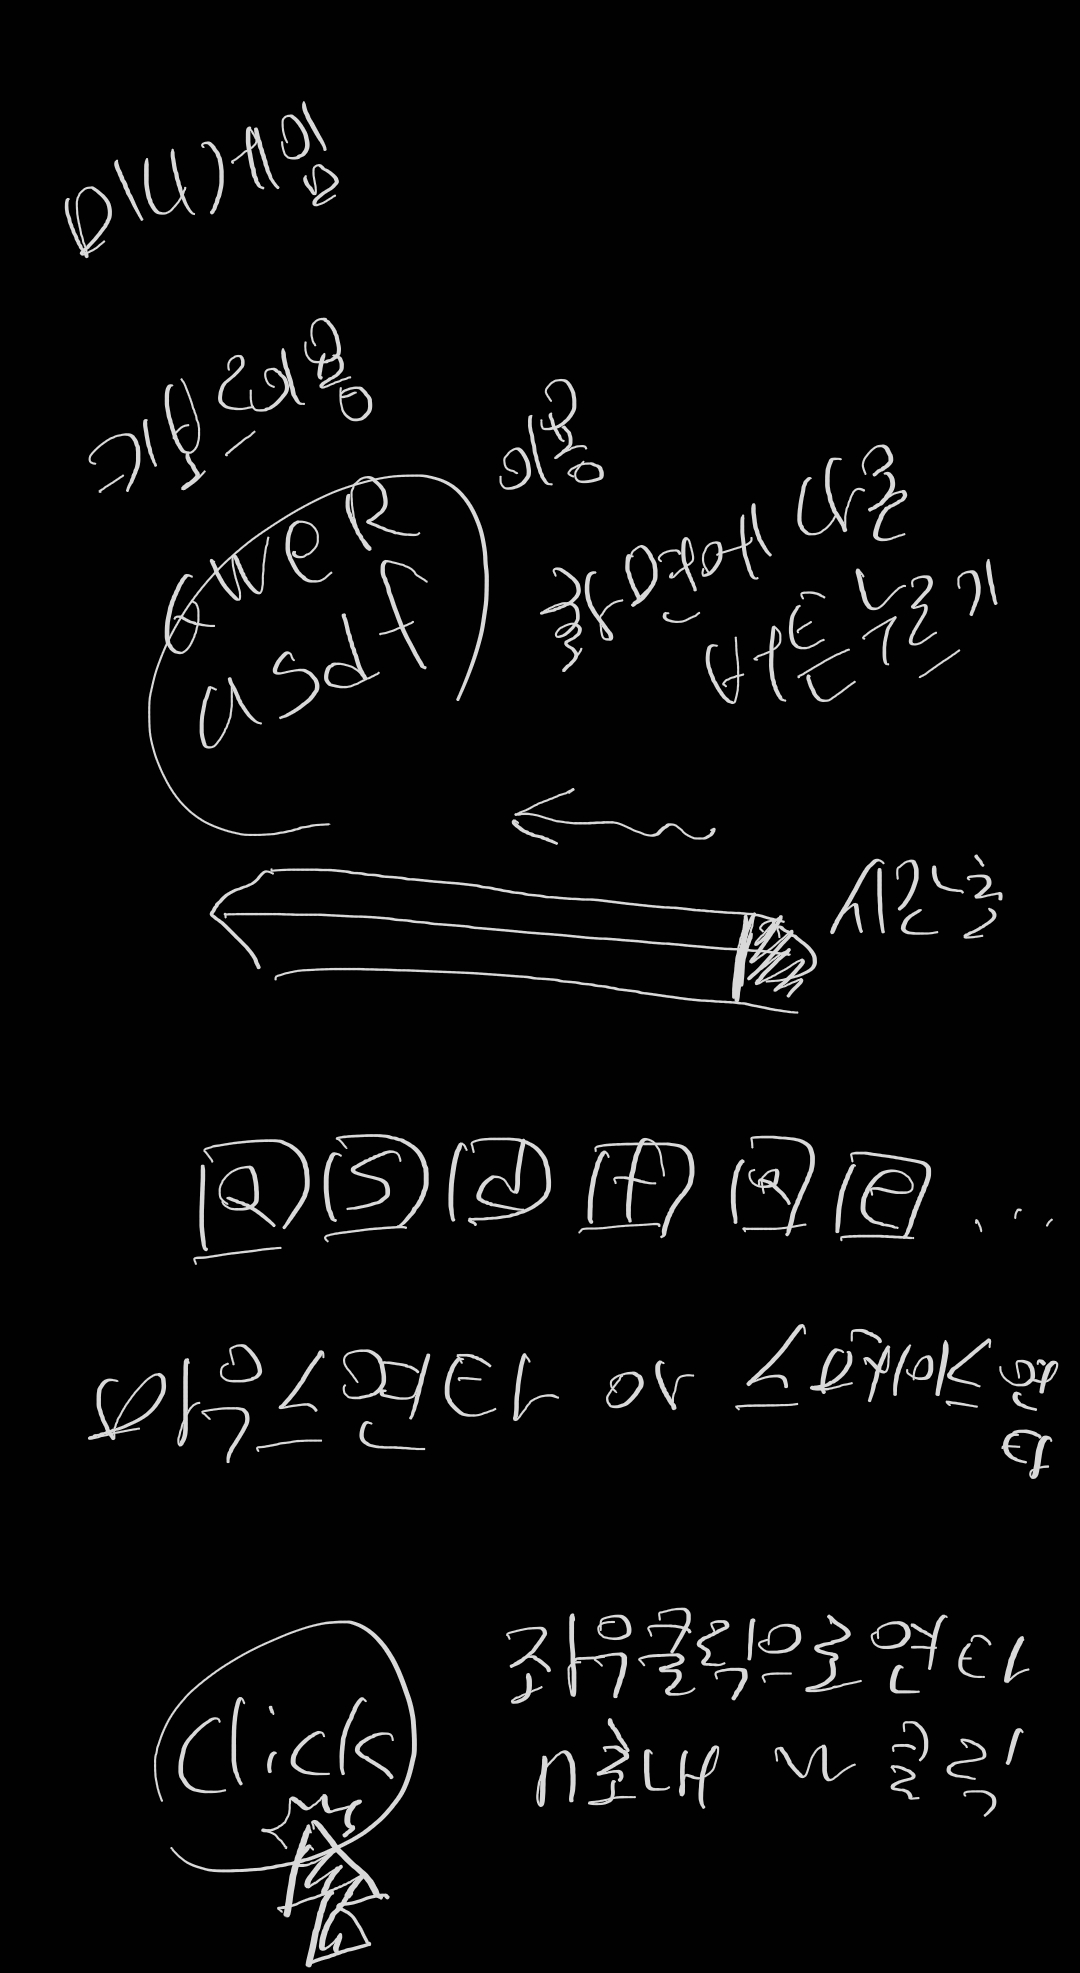 미니게임
기본전용
이용
QWER
asdf
화면에 나온
버튼 누르기
시간초
Q S d f Q e ...
마우스연타 or 스페이스연타
Click
좌우클릭으로 연타
n초내 n클릭